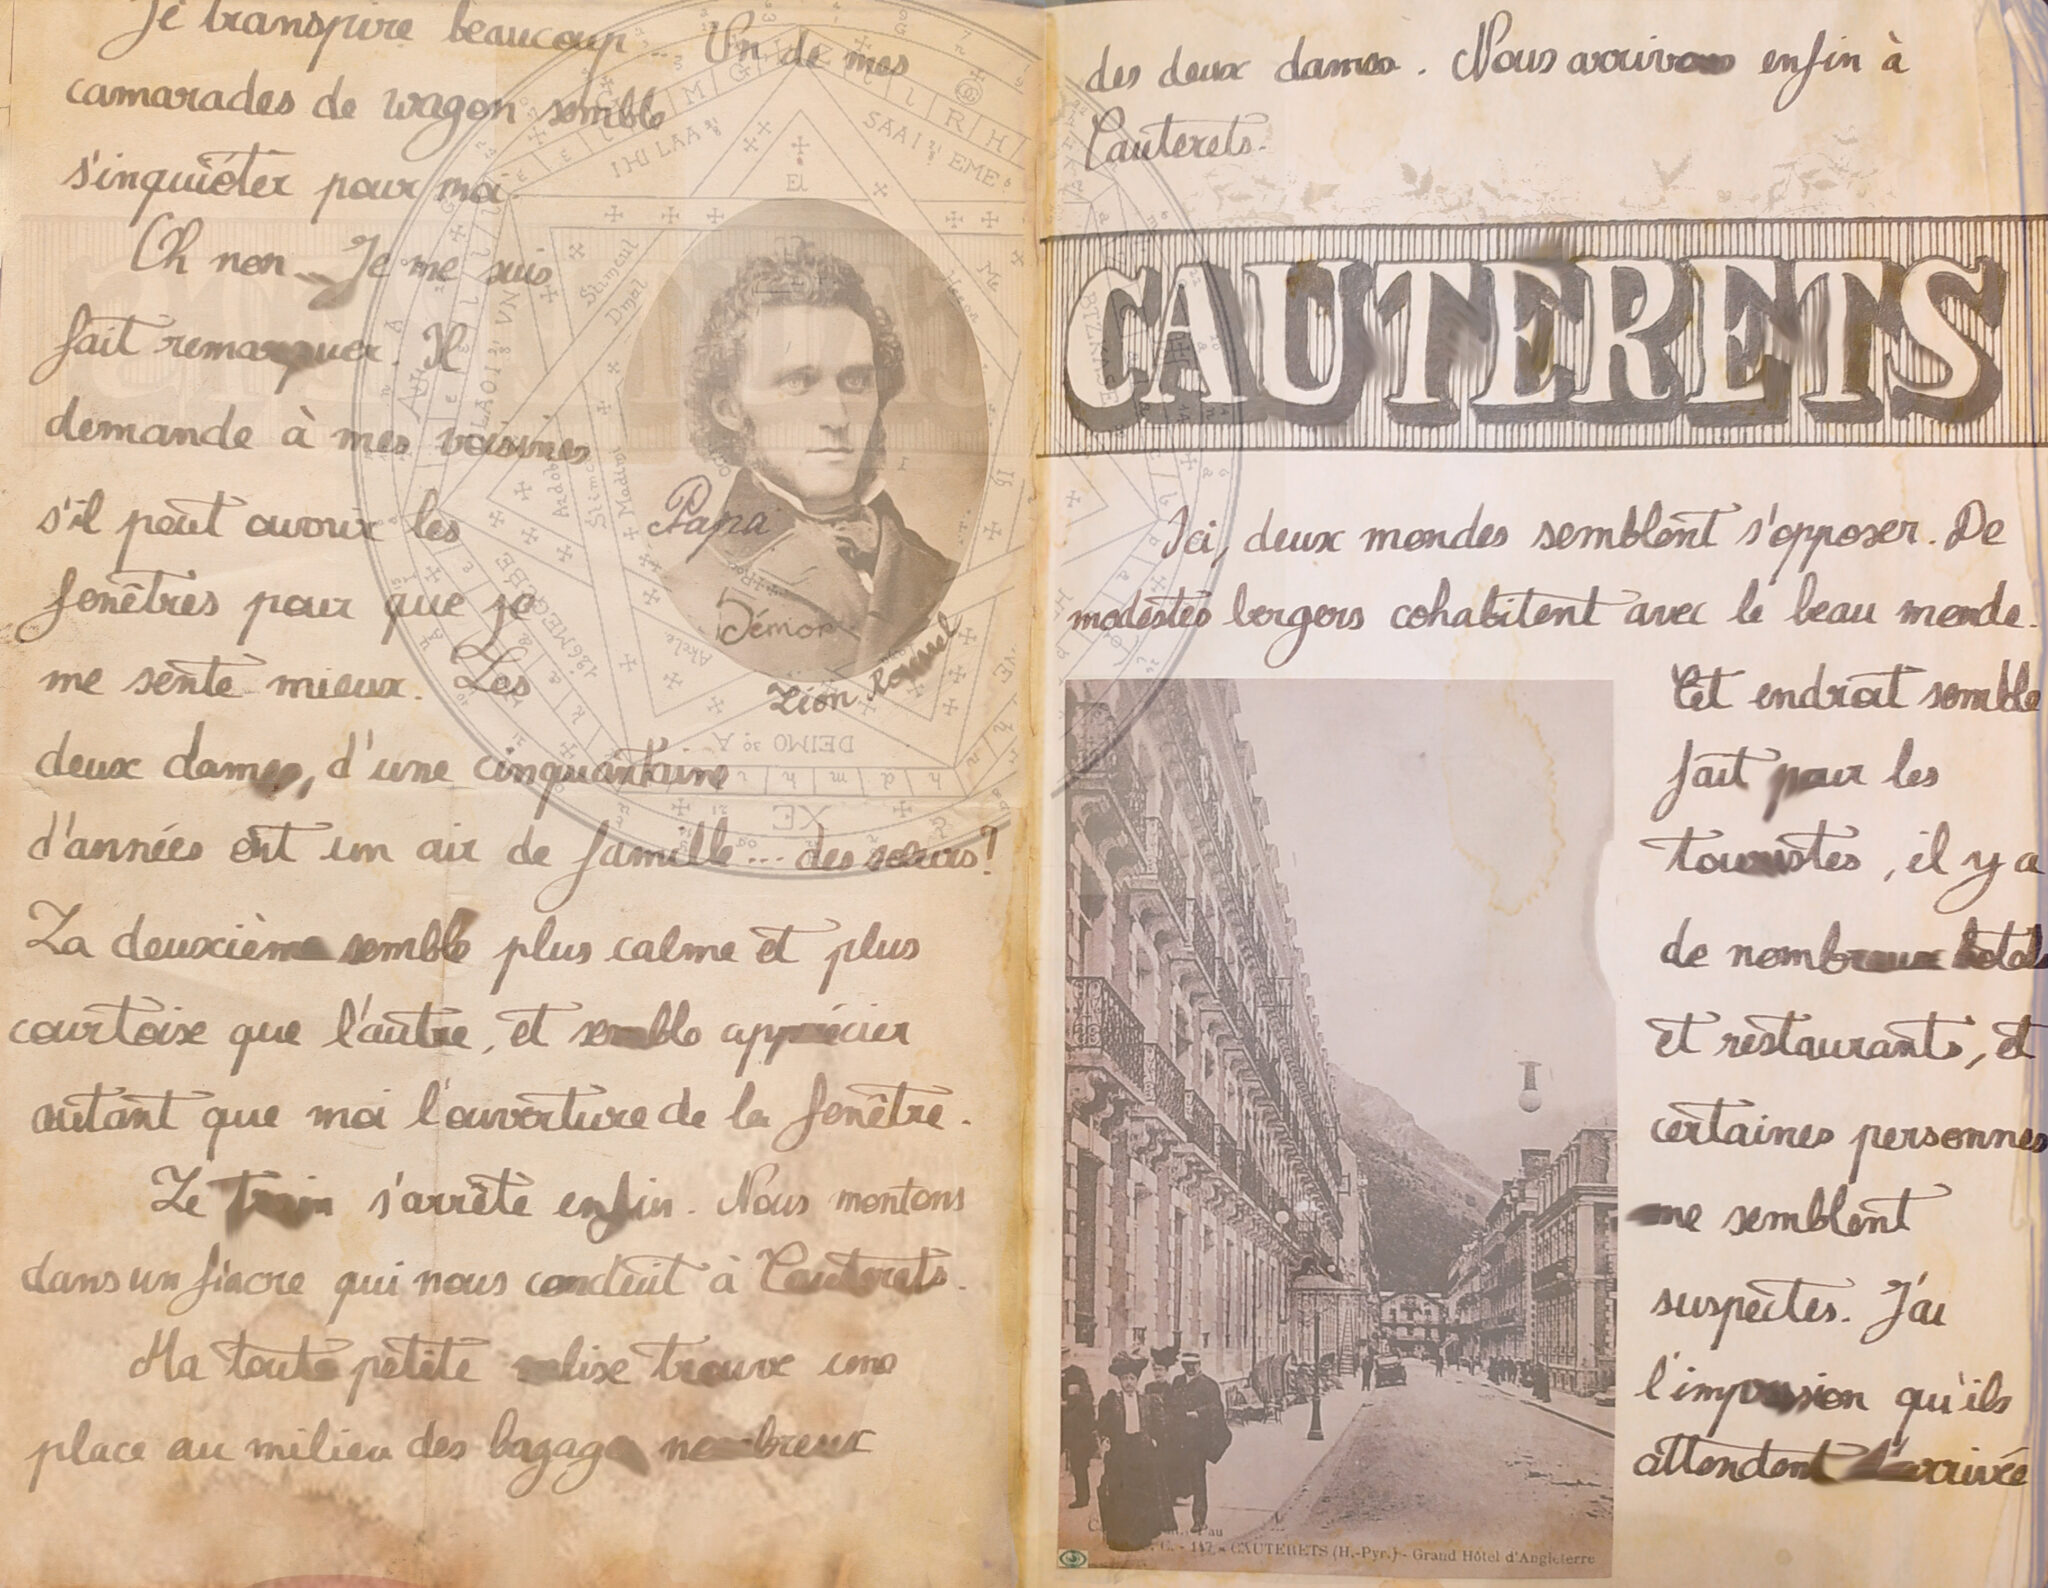 Je transpire beaucoup... Un de mes
camarades de wagon semble
s'inquiéter pour moi.
Oh non... Je me suis
fait remarquer. Il
demande à mes voisines
s'il peut ouvrir les
fenêtres pour que je
me sente mieux. Les
deux dames, d'une cinquantaine
d'années ont un air de famille... des sœurs?
La deuxième semble plus calme et plus
courtoise que l'autre, et semble apprécier
autant que moi l'ouverture de la fenêtre.
Le train s'arrête enfin. Nous montons
dans un fiacre qui nous conduit à Cauterets.
Ma toute petite valise trouve une
place au milieu des bagages nombreux
Papa
Démon
Léon Roussel
IHU LAA
SAAI 21/8 EME
El
DEIMO 30 A
XE
des deux dames. Nous arrivons enfin à
Cauterets.
CAUTERETS
Ici, deux mondes semblent s'opposer. De
modestes bergers cohabitent avec le beau monde.
Cet endroit semble
fait pour les
touristes, il y a
de nombreux hotels
et restaurants, et
certaines personnes
me semblent
suspectes. J'ai
l'impression qu'ils
attendent l'arrivée
Pau
C. - 117 - CAUTERETS (H.-Pyr.) - Grand Hôtel d'Angleterre